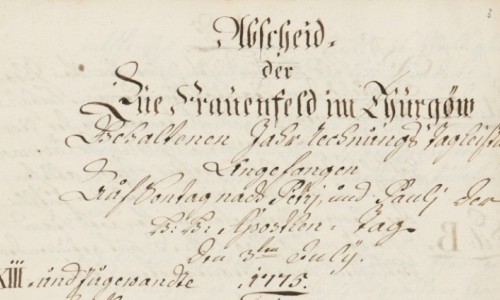 Abscheid.
der
Züe Frauenfeld im Thürgöw
Gehaltenen Jahr Rechnungs Tagleist
Angefangen
Auf Sontag nach Petrj und Paulj der
H: H: Aposteln Tag
den 3ten Julÿ.
XIII und Zugewandte 1775.